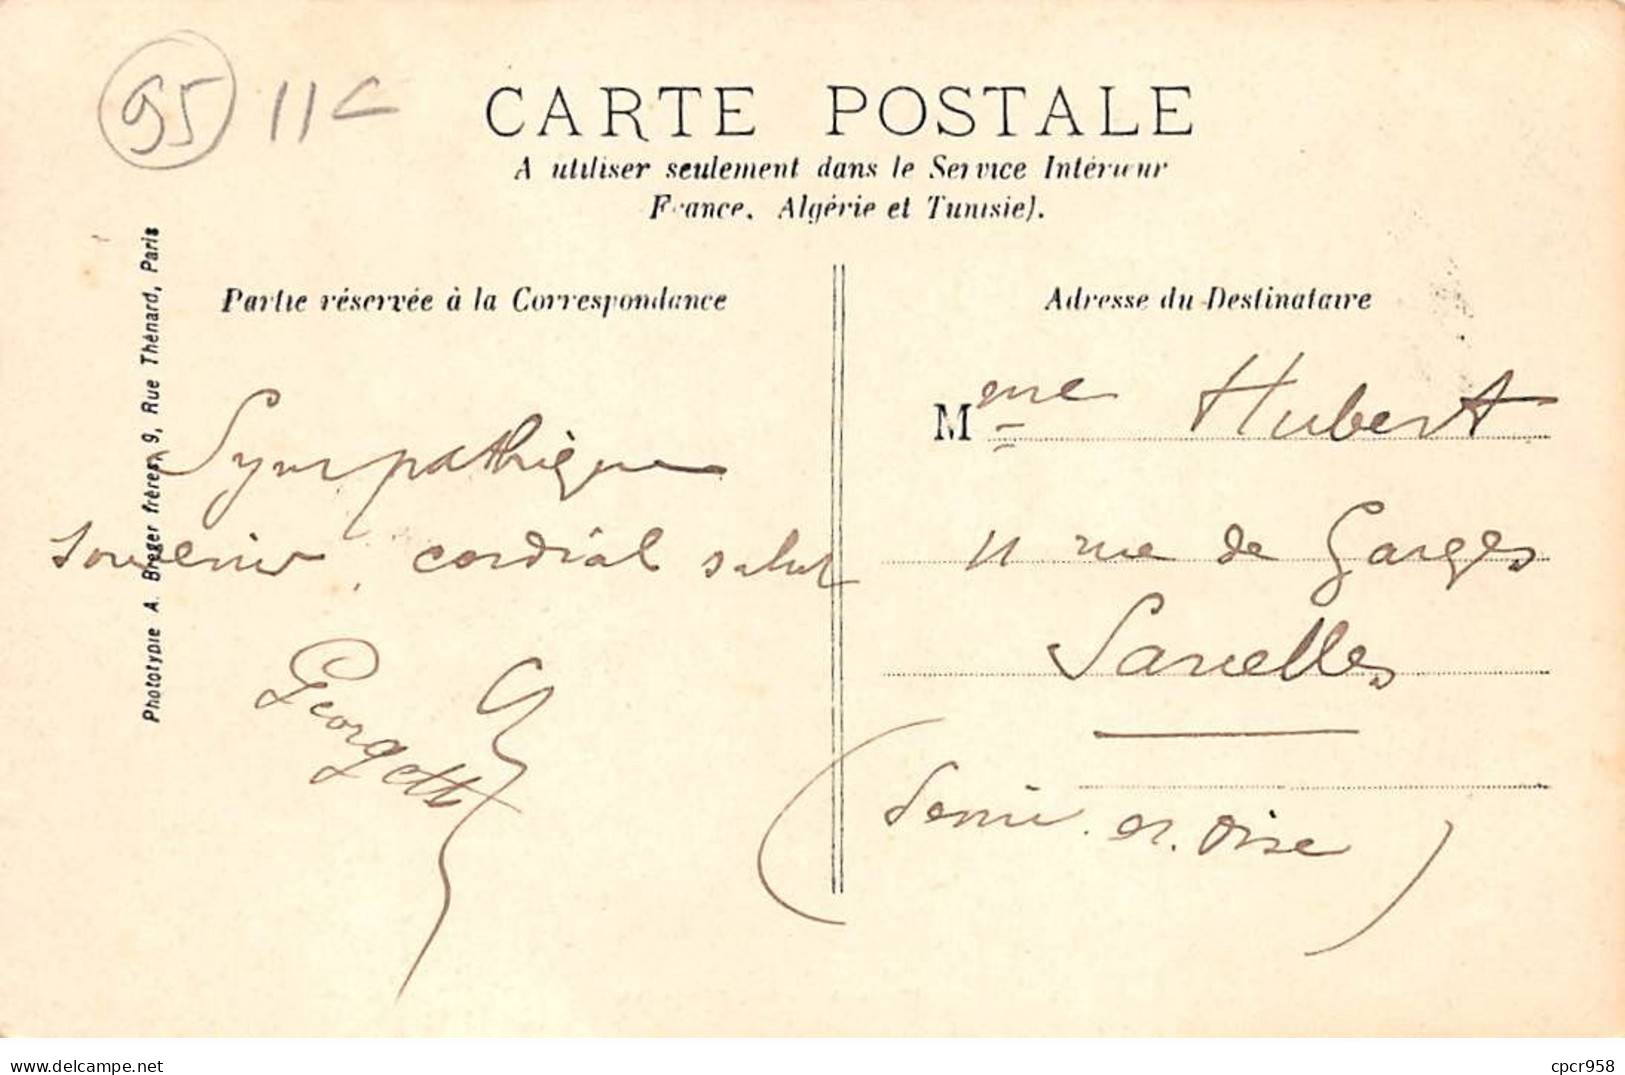 95 11
CARTE POSTALE
A utiliser seulement dans le Service Intérieur
France, Algérie et Tunisie).
Partie réservée à la Correspondance
Adresse du Destinataire
Phototypie A. Breger frères, 9, Rue Thénard, Paris
Sympathique
souvenir, cordial salut
Georgette
Mme Hubert
11 rue de Garges
Sarcelles
(Seine et Oise)
www.delcampe.net
cpcr958